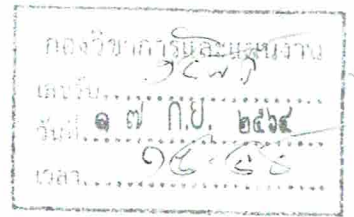 กองวิชาการและแผนงาน
เลขรับ
วันที่ ๑ ๗ ก.ย. ๒๕๖๔
เวลา